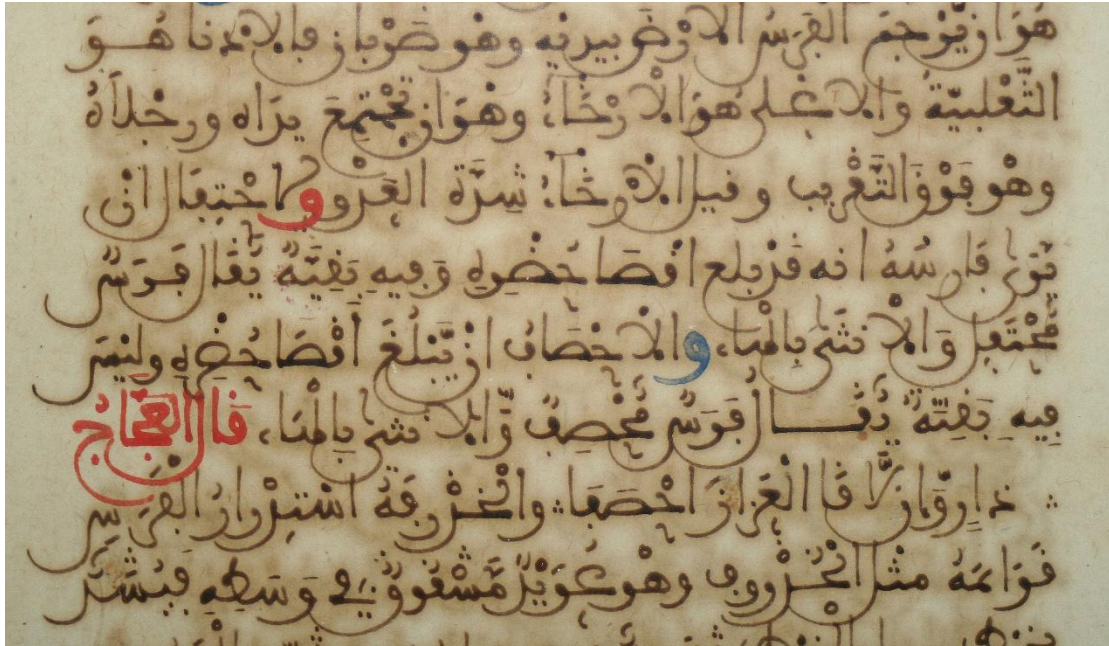 هو ان يرجم الفرس الارض بيديه وهو ضربان فالادنا هو
الثعلبية والاعلى هو الارخاء وهو ان تجتمع يداه ورجلاه
وهو فوق التقريب وقيل الارخاء شدة العدو والاحتفال ان
يرى فارسه انه قد بلغ اقصا حضره وفيه بقية يقال فرس
محتفل والانثى بالهاء والاحصاف ان يبلغ اقصا حضره وليس
فيه بقية يقال فرس محصف والانثى بالهاء قال العجاج
ذار وان لاقا العزاز احصفا والخذرفة استدرار الفرس
قوائمه مثل الخذروف وهو عويد مشقوق في وسطه فيشد